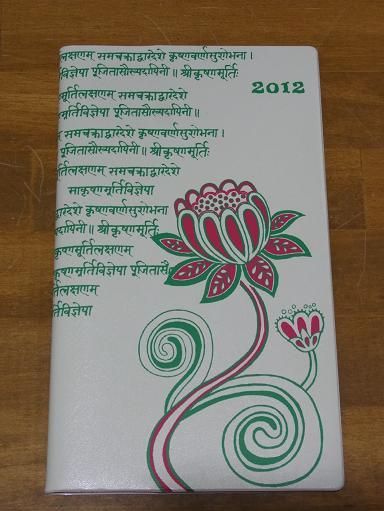 लक्षणम् समचक्राद्वारदेशे कृष्णवर्णसुशोभना ।
र्तिविज्ञेया पूजितासौख्यदायिनी॥ श्रीकृष्णमूर्तिः
2012
मूर्तिलक्षणम् समचक्राद्वारदेशे
मूर्तिविज्ञेया पूजितासौख्यदायिनी॥
समचक्राद्वारदेशे कृष्णवर्णसुशोभना ।
पूजितासौख्यदायिनी॥ श्रीकृष्णमूर्तिः
र्तिलक्षणम् समचक्राद्वारदेशे
माकृष्णमूर्तिविज्ञेया
ारदेशे कृष्णवर्णसुशोभना
दायिनी॥ श्रीकृष्णमूर्ति
कृष्णमूर्तिलक्षणम्
कृष्णमूर्तिविज्ञेया पूजितासौ
र्तिलक्षणम्
र्तिविज्ञेया